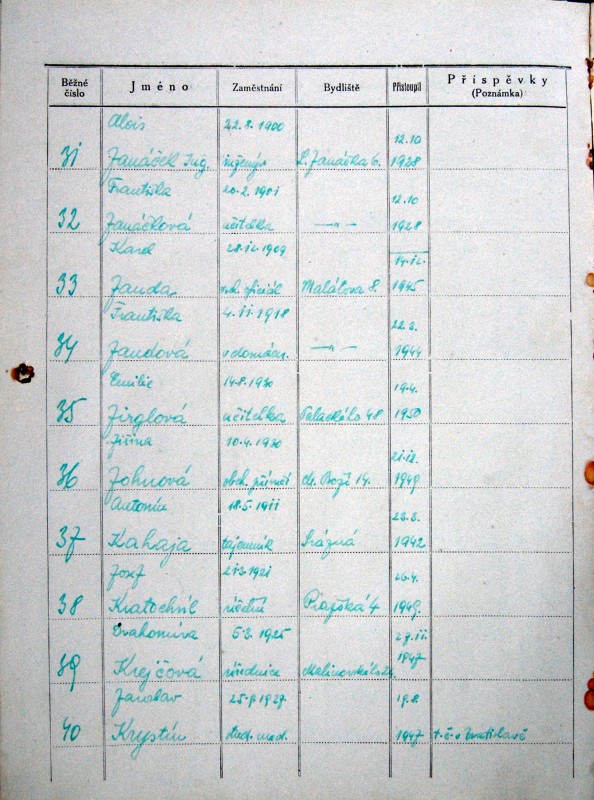 Běžné číslo Jméno Zaměstnání Bydliště Přistoupil Příspěvky (Poznámka)
Alois 22. 8. 1900 12.10
31 Janáček Ing. inženýr L. Janáčka 6. 1928
Františka 20.2. 1901 12.10
32 Janáčková učitelka —〃— 1928
Karel 28.12. 1909 14.12.
33 Janda oficiál Malátova 8. 1945
Františka 4. 11. 1918 22.2.
34 Jandová v domácn. —〃— 1944
Emilie 14.8. 1930 19.4.
35 Jirglová učitelka 48 1950
Jiřina 10.4. 1930 21.12.
36 Johnová obch. 14. 1949
Antonín 18.5. 1911 23.3.
37 Kahaja tajemník Srázná 1942
Josef 21.3. 1921 26.4.
38 Kratochvíl úřední 4 1949.
Drahomíra 5.3. 1925 27.11.
39 Krejčová úřednice 1947
Jaroslav 1927 19.8.
40 Krystín stud. med. 1947 t.č. v Bratislavě